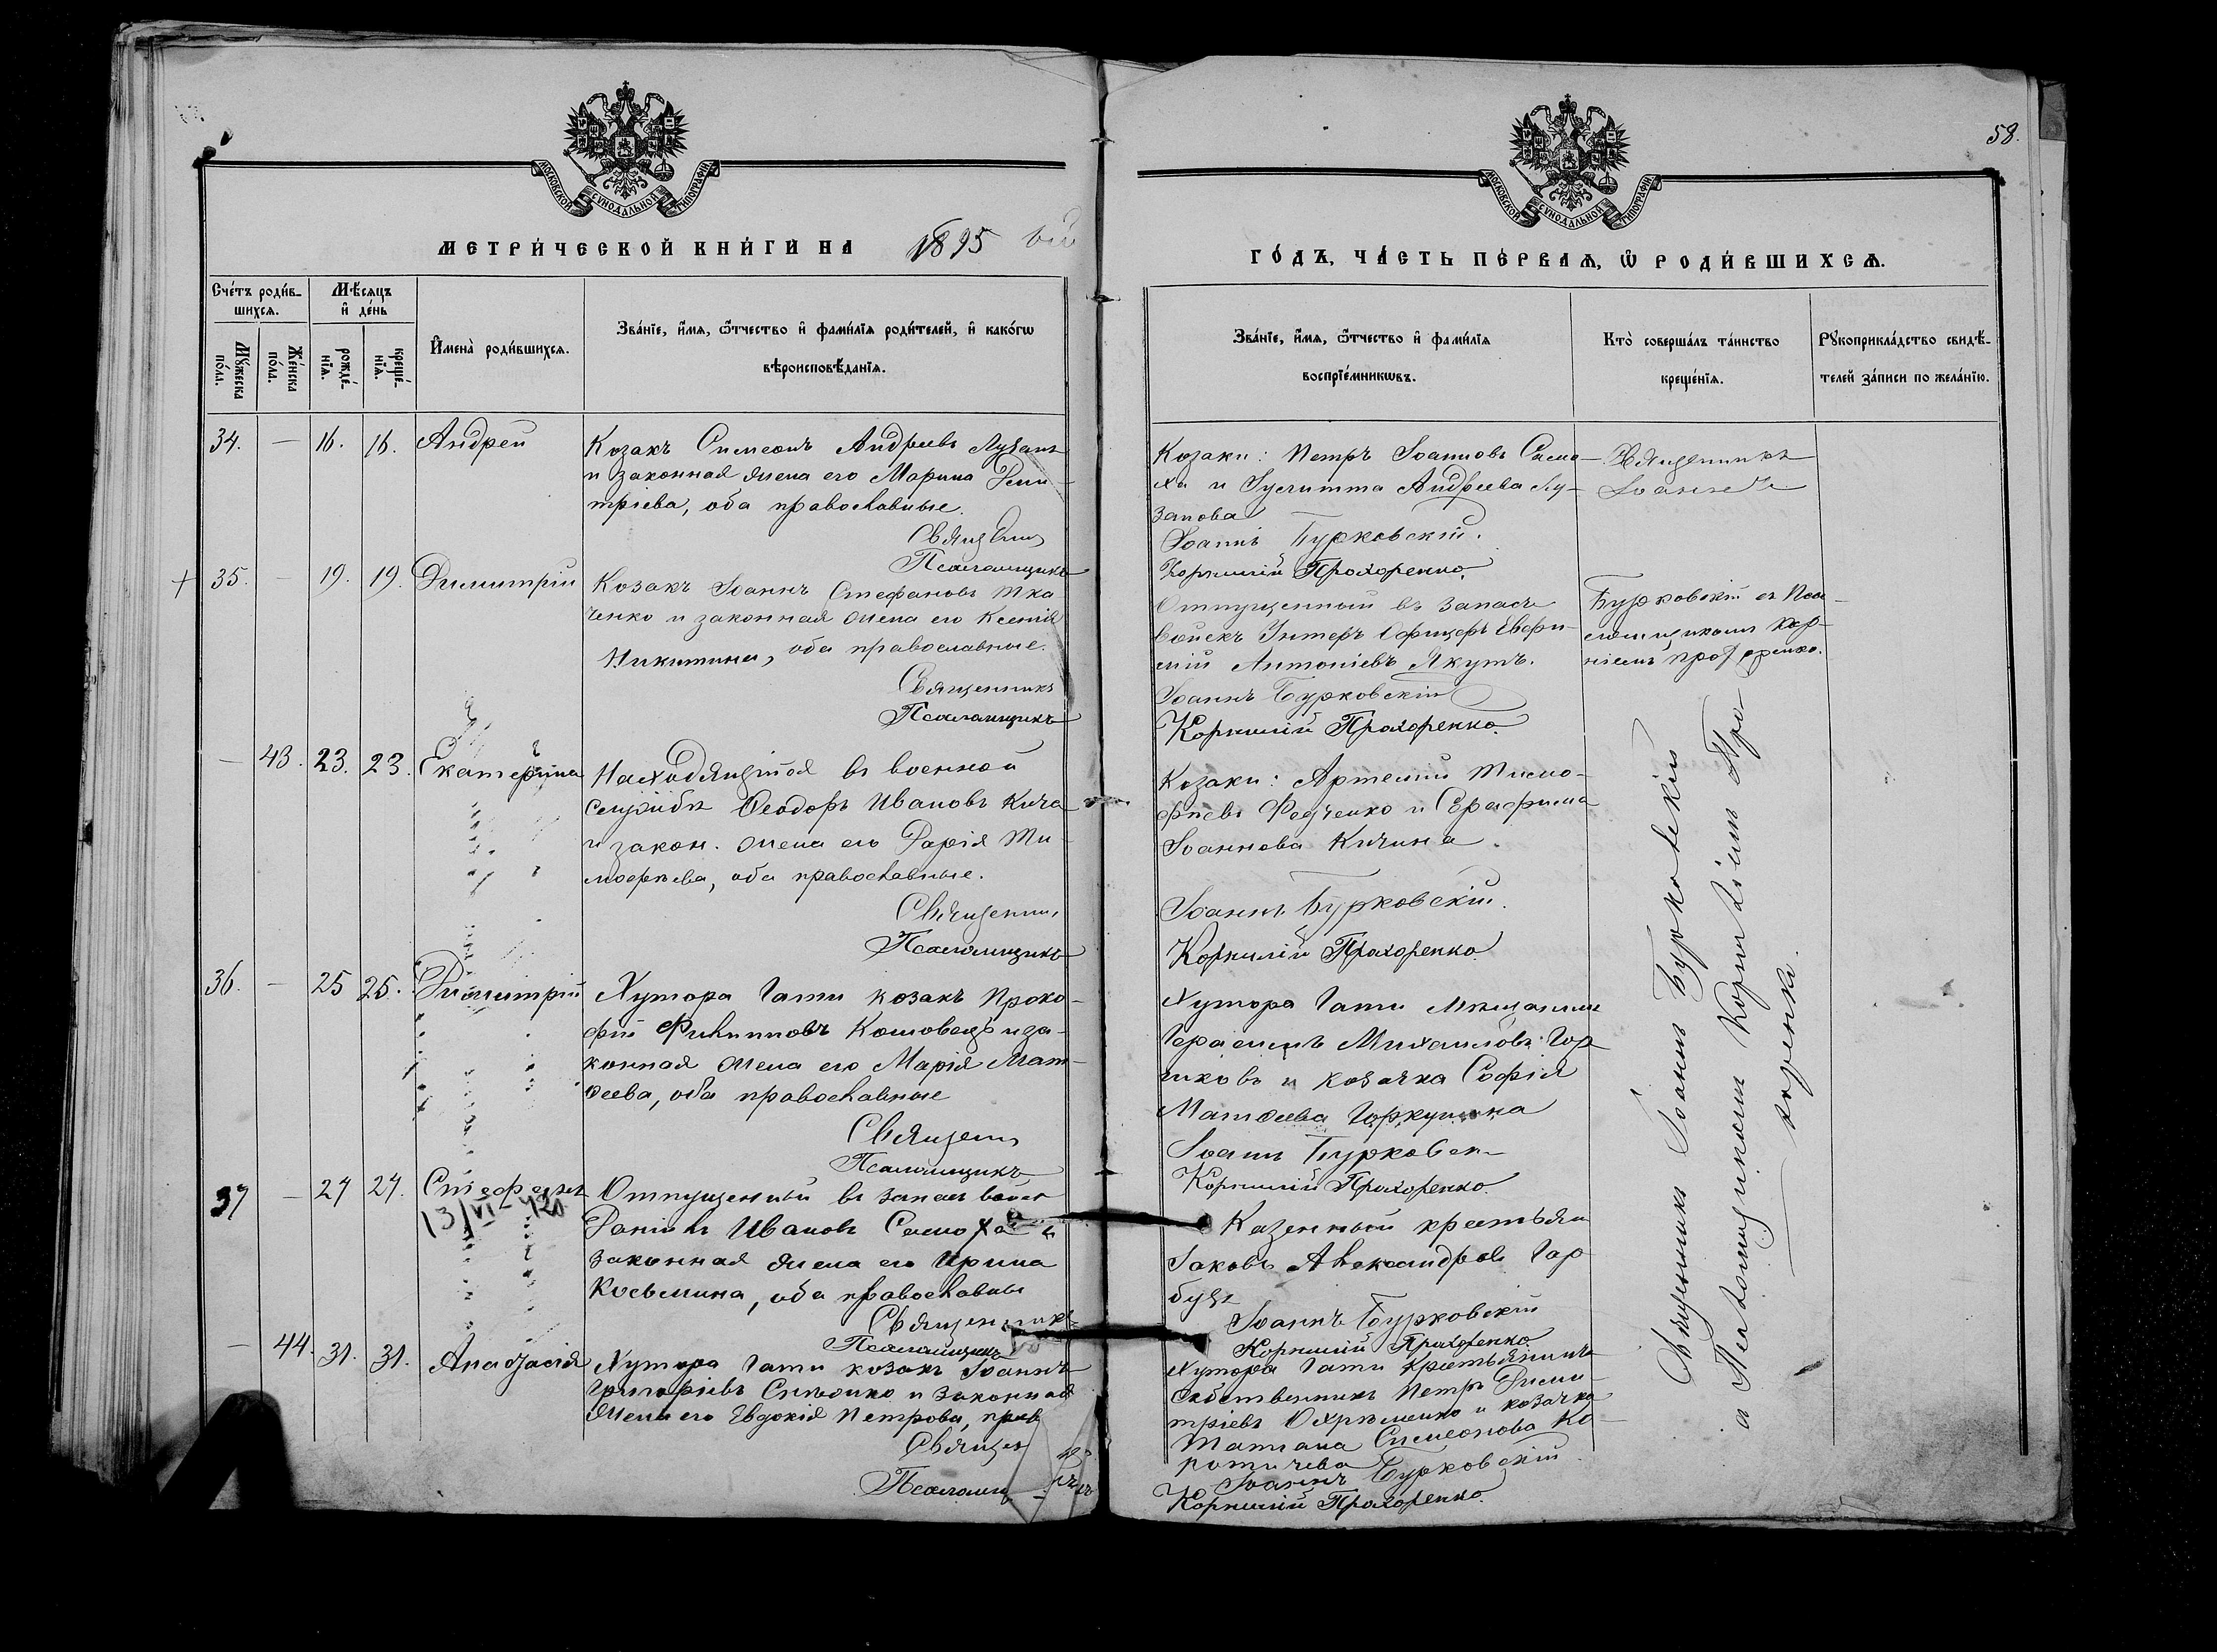 58.
МОСКОВСКОЙ СѴНОДАЛЬНОЙ ТИПОГРАФІИ
МОСКОВСКОЙ СѴНОДАЛЬНОЙ ТИПОГРАФІИ
МЕТРИ́ЧЕСКОЙ КНИ́ГИ НА 1895
ГО́ДЪ, ЧА́СТЬ ПЕ́РВАѦ, Ѡ РОДИ́ВШИХСѦ.
Сче́тъ роди́в-
шихсѧ.
Мѣ́сѧцъ
и҆ де́нь
Мꙋ́жеска
по́ла.
Же́нска
по́ла.
рожде́-
нїѧ.
креще́-
нїѧ.
И҆мена̀ роди́вшихсѧ.
Зва́нїе, и҆́мѧ, ѻ҆́тчество и҆ фами́лїѧ роди́телей, и҆ како́гѡ
вѣроисповѣ́данїѧ.
Зва́нїе, и҆́мѧ, ѻ҆́тчество и҆ фами́лїѧ
воспрїе́мникѡвъ.
Кто̀ соверша́лъ та́инство
креще́нїѧ.
Рꙋкоприкла́дство свидѣ́-
телей за́писи по жела́нїю.
34. — 16. 16. Андрей
Козакъ Симеонъ Андреевъ Лузанъ
и законная жена его Марина Дими-
тріева, оба православные.
Священ
Псаломщикъ
Козаки: Петръ Іоанновъ Само-
ха и Іулитта Андреева Лу-
занова
Іоаннъ Бурковскій.
Корнилій Прохоренко.
Священникъ
Іоаннъ
+ 35. — 19. 19. Димитрій
Козакъ Іоаннъ Стефановъ Тка
ченко и законная жена его Ксенія
Никитина, оба православные.
Священникъ
Псаломщикъ
Отпущенный въ запасъ
войскъ Унтеръ Офицеръ Евфи-
мій Антоніевъ Якутъ.
Іоаннъ Бурковскій
Корнилій Прохоренко.
Бурковскій съ Пса-
ломщикомъ Кор-
ніемъ Прохоренко.
— 43. 23. 23. Екатерина
Находящійся въ военной
службѣ Ѳеодоръ Ивановъ Кича
и закон. жена его Дарія Ти-
моѳеева, оба православные.
Священни
Псаломщикъ
Козаки: Артемій Тимо-
фѣевъ Федченко и Серафима
Іоаннова Кичина.
Іоаннъ Бурковскій.
Корнилій Прохоренко
36. — 25 25. Димитрій
Хутора Гати козакъ Проко-
фій Филипповъ Кошовецъ и за-
конная жена его Марія Мат-
ѳеева, оба православные
Священ
Псаломщикъ
Хутора Гати мѣщанинъ
Герасимъ Михаиловъ Гор
шковъ и козачка Софія
Матѳеева
Іоаннъ Бурковск
Корнилій Прохоренко.
37 — 27 27. Стефанъ
13/VI
Отпущенный въ запасъ войск
Даніилъ Ивановъ Самоха и
законная жена его Ирина
Косьмина, оба православны
Священникъ
Псаломщикъ
Казенный крестьян
Іаковъ Александровъ Гар
бузъ
Іоаннъ Бурковскій
Корнилій Прохоренко
— 44. 31. 31. Анастасія
Хутора Гати козакъ Іоаннъ
Григоріевъ и законная
жена его Евдокія Петрова, прав
Священ
Псаломщ
Хутора Гати крестьянинъ
собственникъ Петръ Дими-
тріевъ Охрѣменко и козачка
Татіана Симеонова Ко-
ротичева
Іоаннъ Бурковскій
Корнилій Прохоренко.
Священникъ Іоаннъ Бурковскій
съ Псаломщикомъ Корниліемъ Про-
хоренко.